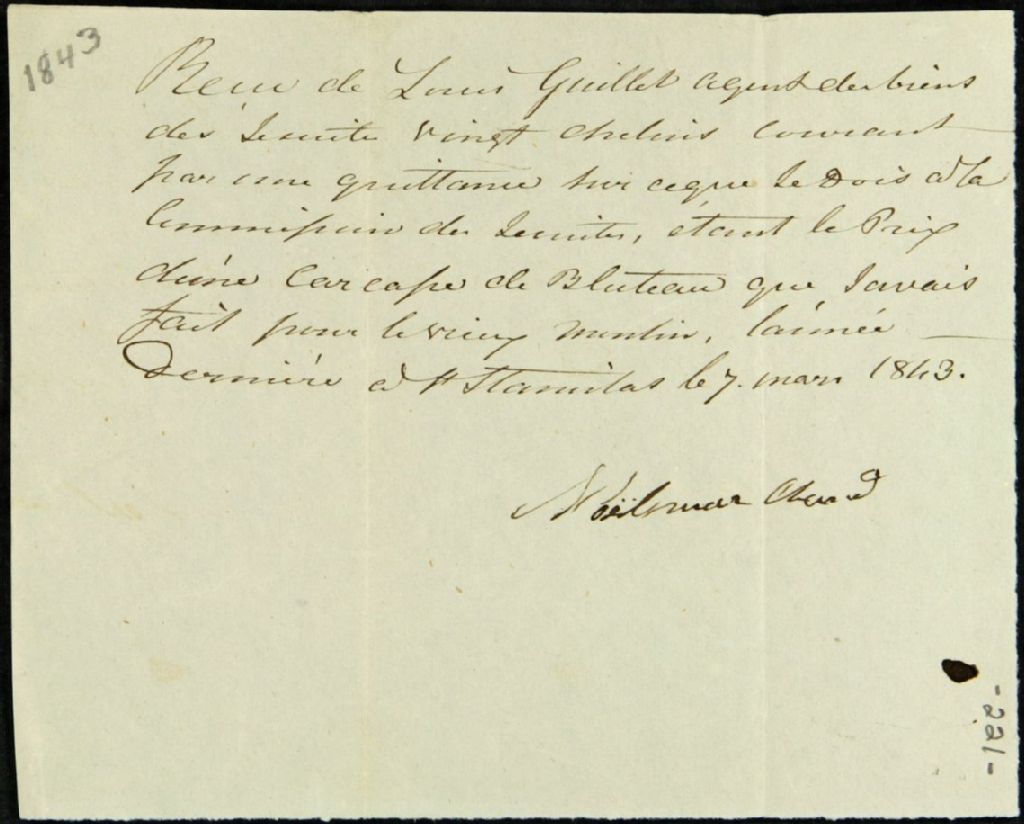 1843
Recu de Louis Guillet agent des biens
des Jesuite vingt chelins courant
par une quittance sur ceque Je Dois à la
Commission des Jesuites, étant le Prix
d'une Carcasse de Bluteau que Javais
fait pour le vieux moulin, l'année
Dernière à St Stanislas le 7. mars 1843.
Noël marchand
-221-